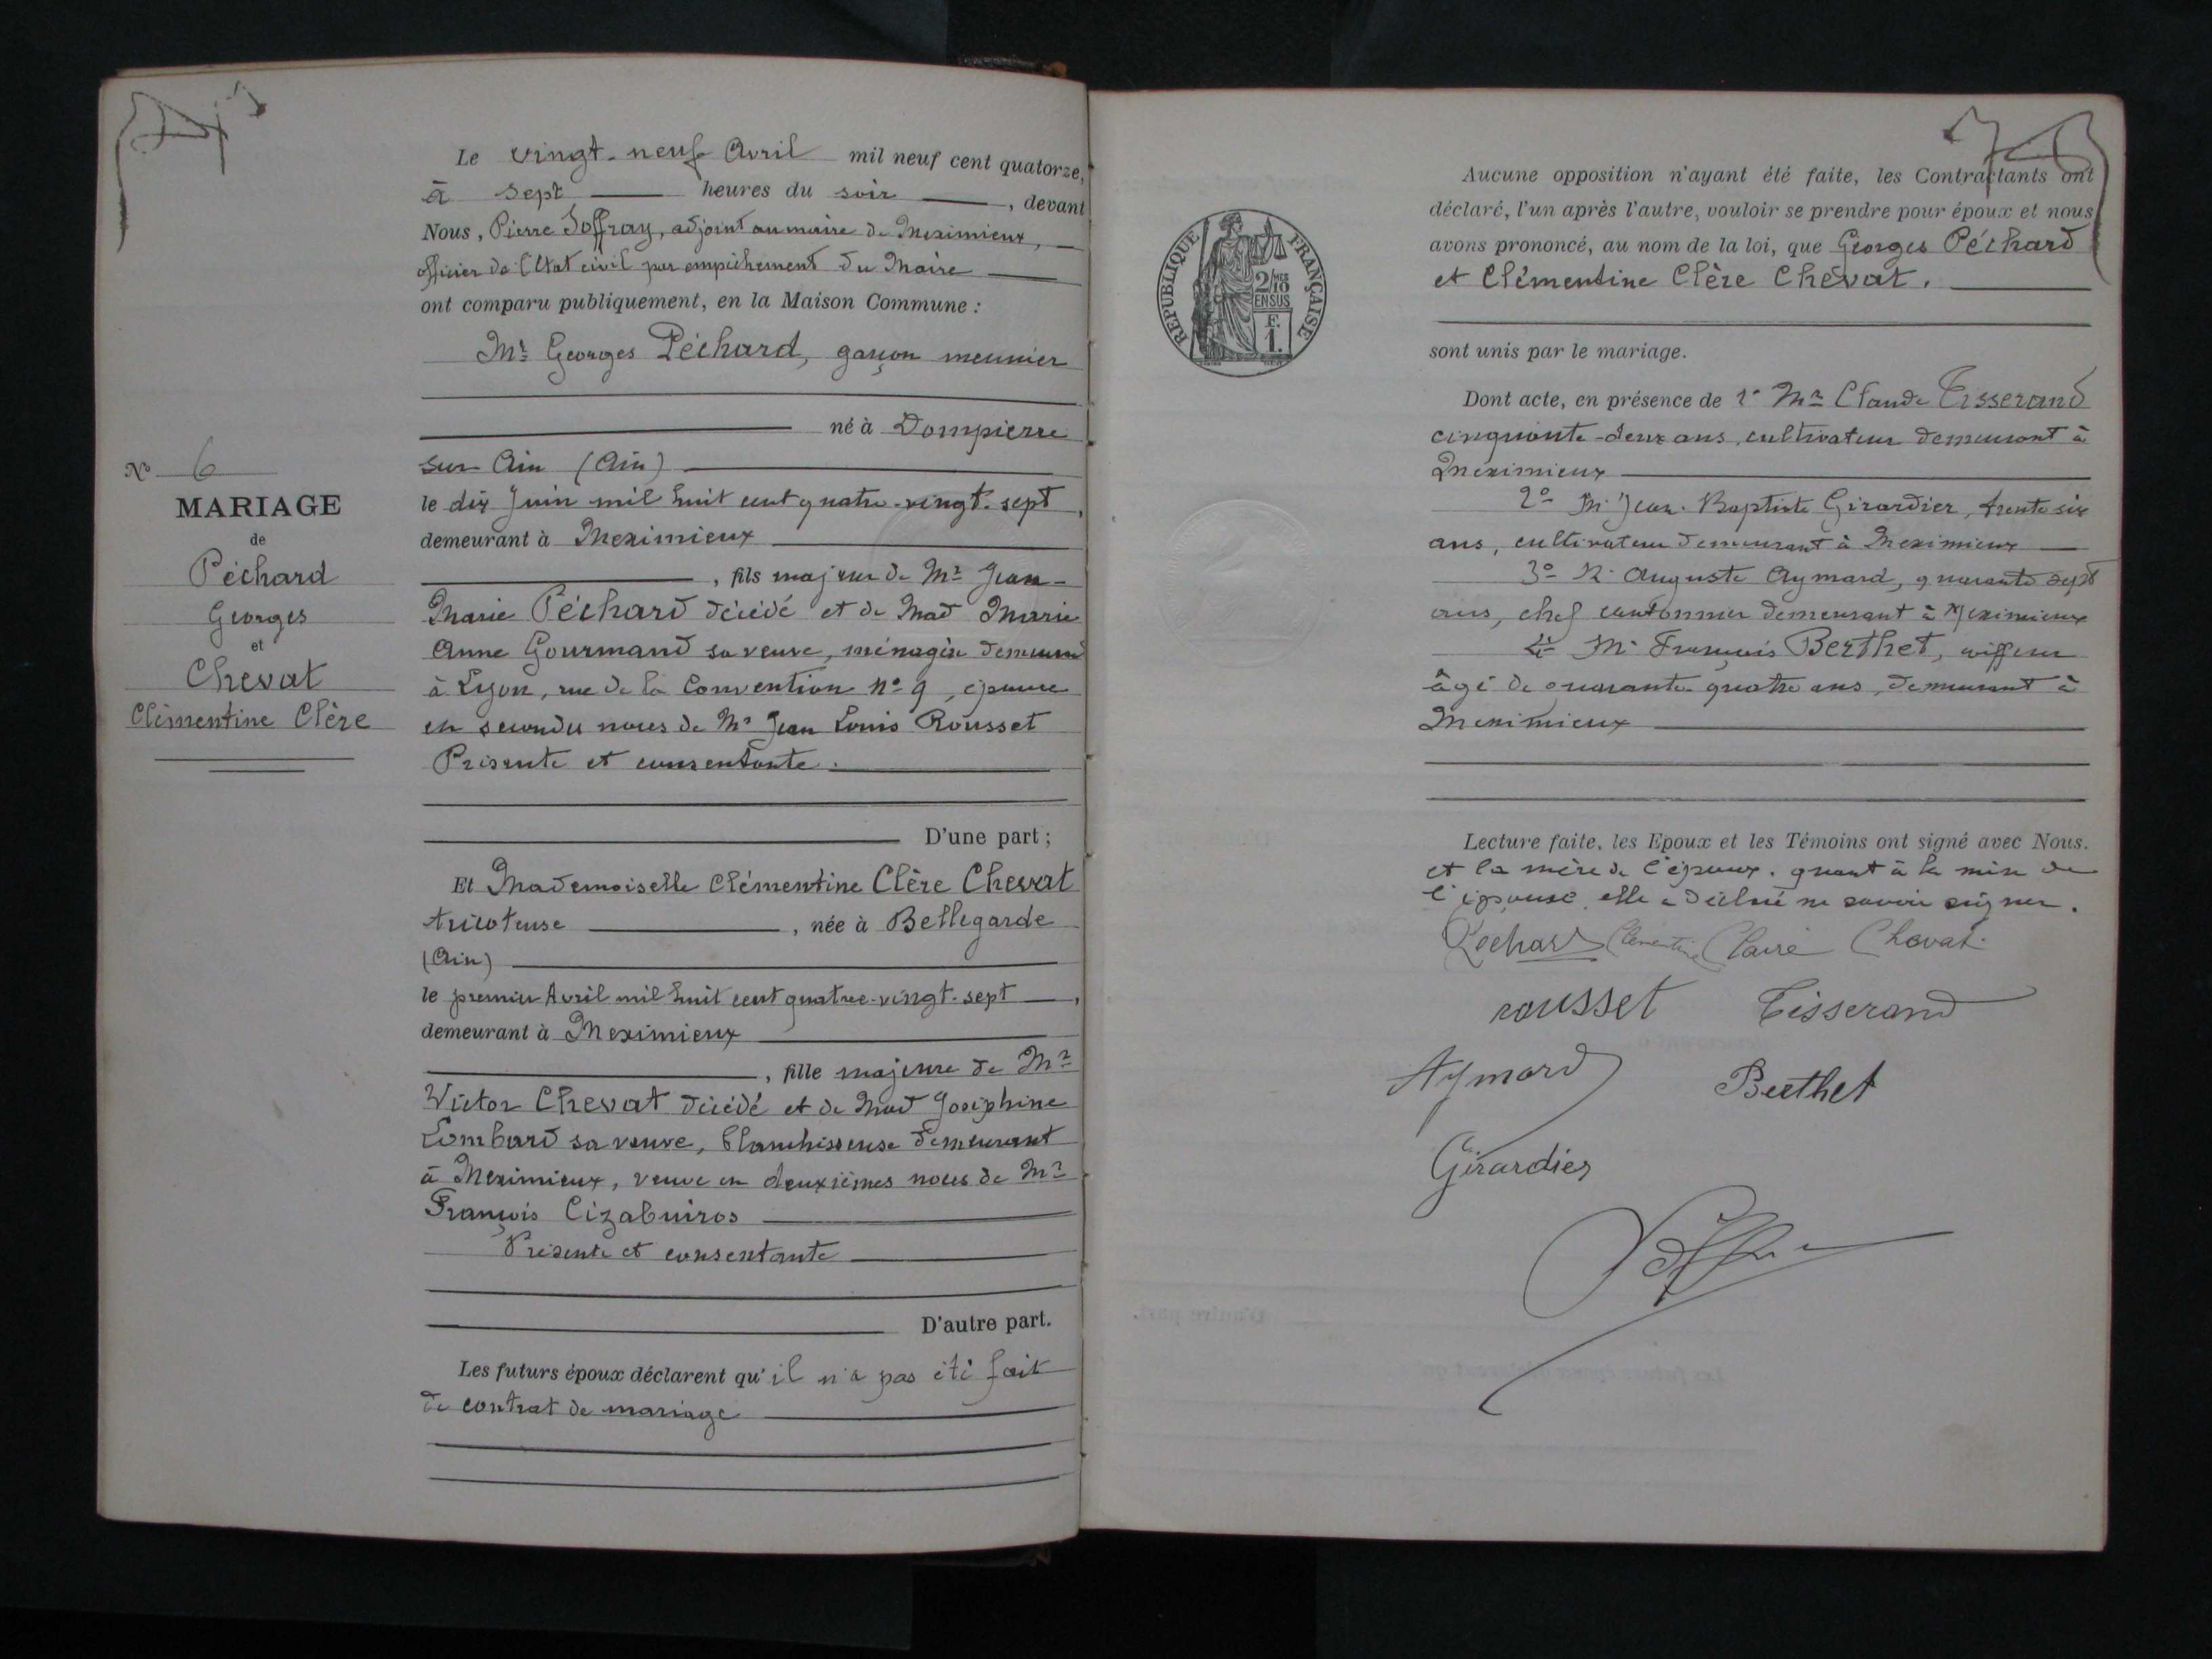 Le vingt-neuf Avril mil neuf cent quatorze,
à sept heures du soir, devant
Nous, Pierre Joffray, adjoint au maire de Meximieux,
officier de l'Etat civil par empêchement du Maire
ont comparu publiquement, en la Maison Commune :
Mr Georges Péchard, garçon meunier
né à Dompierre
sur Ain (Ain)
le dix Juin mil huit cent quatre-vingt-sept,
demeurant à Meximieux
, fils majeur de Mr Jean-
Marie Péchard décédé et de Mad Marie
Anne Gourmand sa veuve, ménagère demeurant
à Lyon, rue de la Convention no 9, épouse
en secondes noces de Mr Jean Louis Rousset
Présente et consentante.
D'une part ;
Et Mademoiselle Clémentine Clère Chevat
tricoteuse, née à Bellegarde
(Ain)
le premier Avril mil huit cent quatre-vingt-sept,
demeurant à Meximieux
, fille majeure de Mr
Victor Chevat décédé et de Mad Joséphine
Lombard sa veuve, blanchisseuse demeurant
à Meximieux, veuve en deuxièmes noces de Mr
François Cizabuiros
Présente et consentante
D'autre part.
Les futurs époux déclarent qu'il n'a pas été fait
de contrat de mariage
No 6
MARIAGE
de
Péchard
Georges
et
Chevat
Clémentine Clère
RÉPUBLIQUE FRANÇAISE
2/10
EN SUS
F.
1.
Aucune opposition n'ayant été faite, les Contractants ont
déclaré, l'un après l'autre, vouloir se prendre pour époux et nous
avons prononcé, au nom de la loi, que Georges Péchard
et Clémentine Clère Chevat.
sont unis par le mariage.
Dont acte, en présence de 1° Mr Claude Tisserand
cinquante-deux ans, cultivateur demeurant à
Meximieux
2° Mr Jean-Baptiste Girardier, trente six
ans, cultivateur demeurant à Meximieux
3° M. Auguste Aymard, quarante sept
ans, chef cantonnier demeurant à Meximieux
4° Mr François Berthet, coiffeur
âgé de quarante-quatre ans, demeurant à
Meximieux
Lecture faite, les Epoux et les Témoins ont signé avec Nous.
et la mère de l'époux. quant à la mère de
l'épouse, elle a déclaré ne savoir signer.
Pechard Clémentine Claire Chevat
rousset Tisserand
Aymard Berthet
Girardier